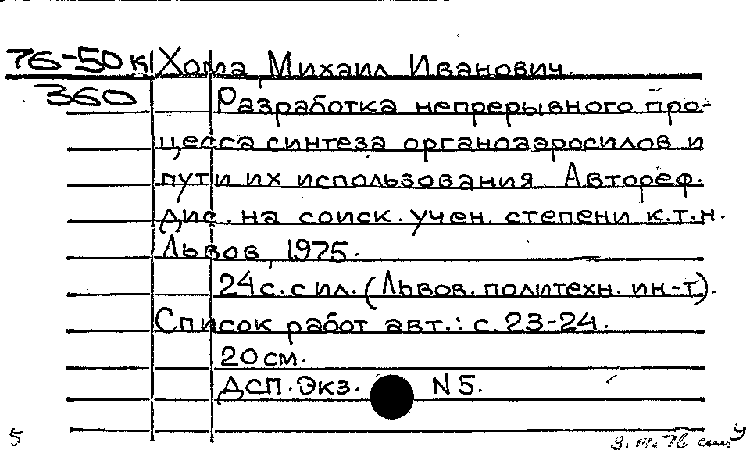 76-50к Хома, Михаил Иванович.
360 Разработка непрерывного про-
цесса синтеза органоаэросилов и
пути их использования. Автореф.
дис. на соиск. учен. степени к.т.н.
Львов, 1975.
24 с. с ил. (Львов. политехн. ин-т).
Список работ авт.: с. 23-24.
20 см.
ДСП. Экз. N 5.
5